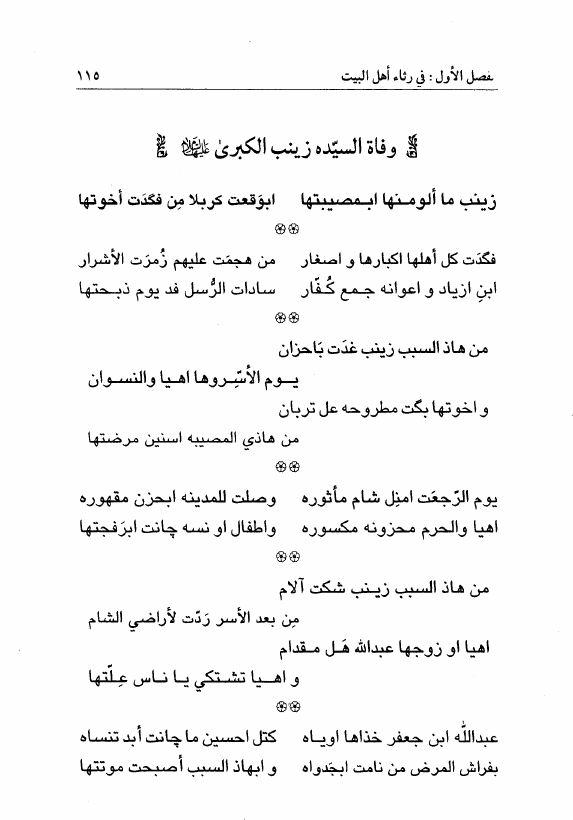 فصل الأول : في رثاء أهل البيت ١١٥
وفاة السيّده زينب الكبرىٰ
زينب ما ألومنها ابمصيبتها ابوَقعت كربلا مِن فگدَت أخوتها
فگدَت كل أهلها اكبارها و اصغار من هجمَت عليهم زُمرَت الأشرار
ابنِ ازياد و اعوانه جمع كُفّار سادات الرُّسل فد يوم ذبحتها
من هاذ السبب زينب غدَت بَاحزان
يوم الأسِّروها اهيا والنسوان
و اخوتها بگت مطروحه عل تربان
من هاذي المصيبه اسنين مرضتها
يوم الرّجعَت امنِل شام مأثوره وصلت للمدينه ابحزن مقهوره
اهيا والحرم محزونه مكسوره واطفال او نسه چانت ابرَفجتها
من هاذ السبب زينب شكت آلام
مِن بعد الأسر رَدّت لأراضي الشام
اهيا او زوجها عبدالله هَل مقدام
و اهيا تشتكي يا ناس عِلّتها
عبدالله ابن جعفر خذاها اوياه كتل احسين ما چانت أبد تنساه
بفراش المرض من نامت ابجَدواه و ابهاذ السبب أصبحت موتتها